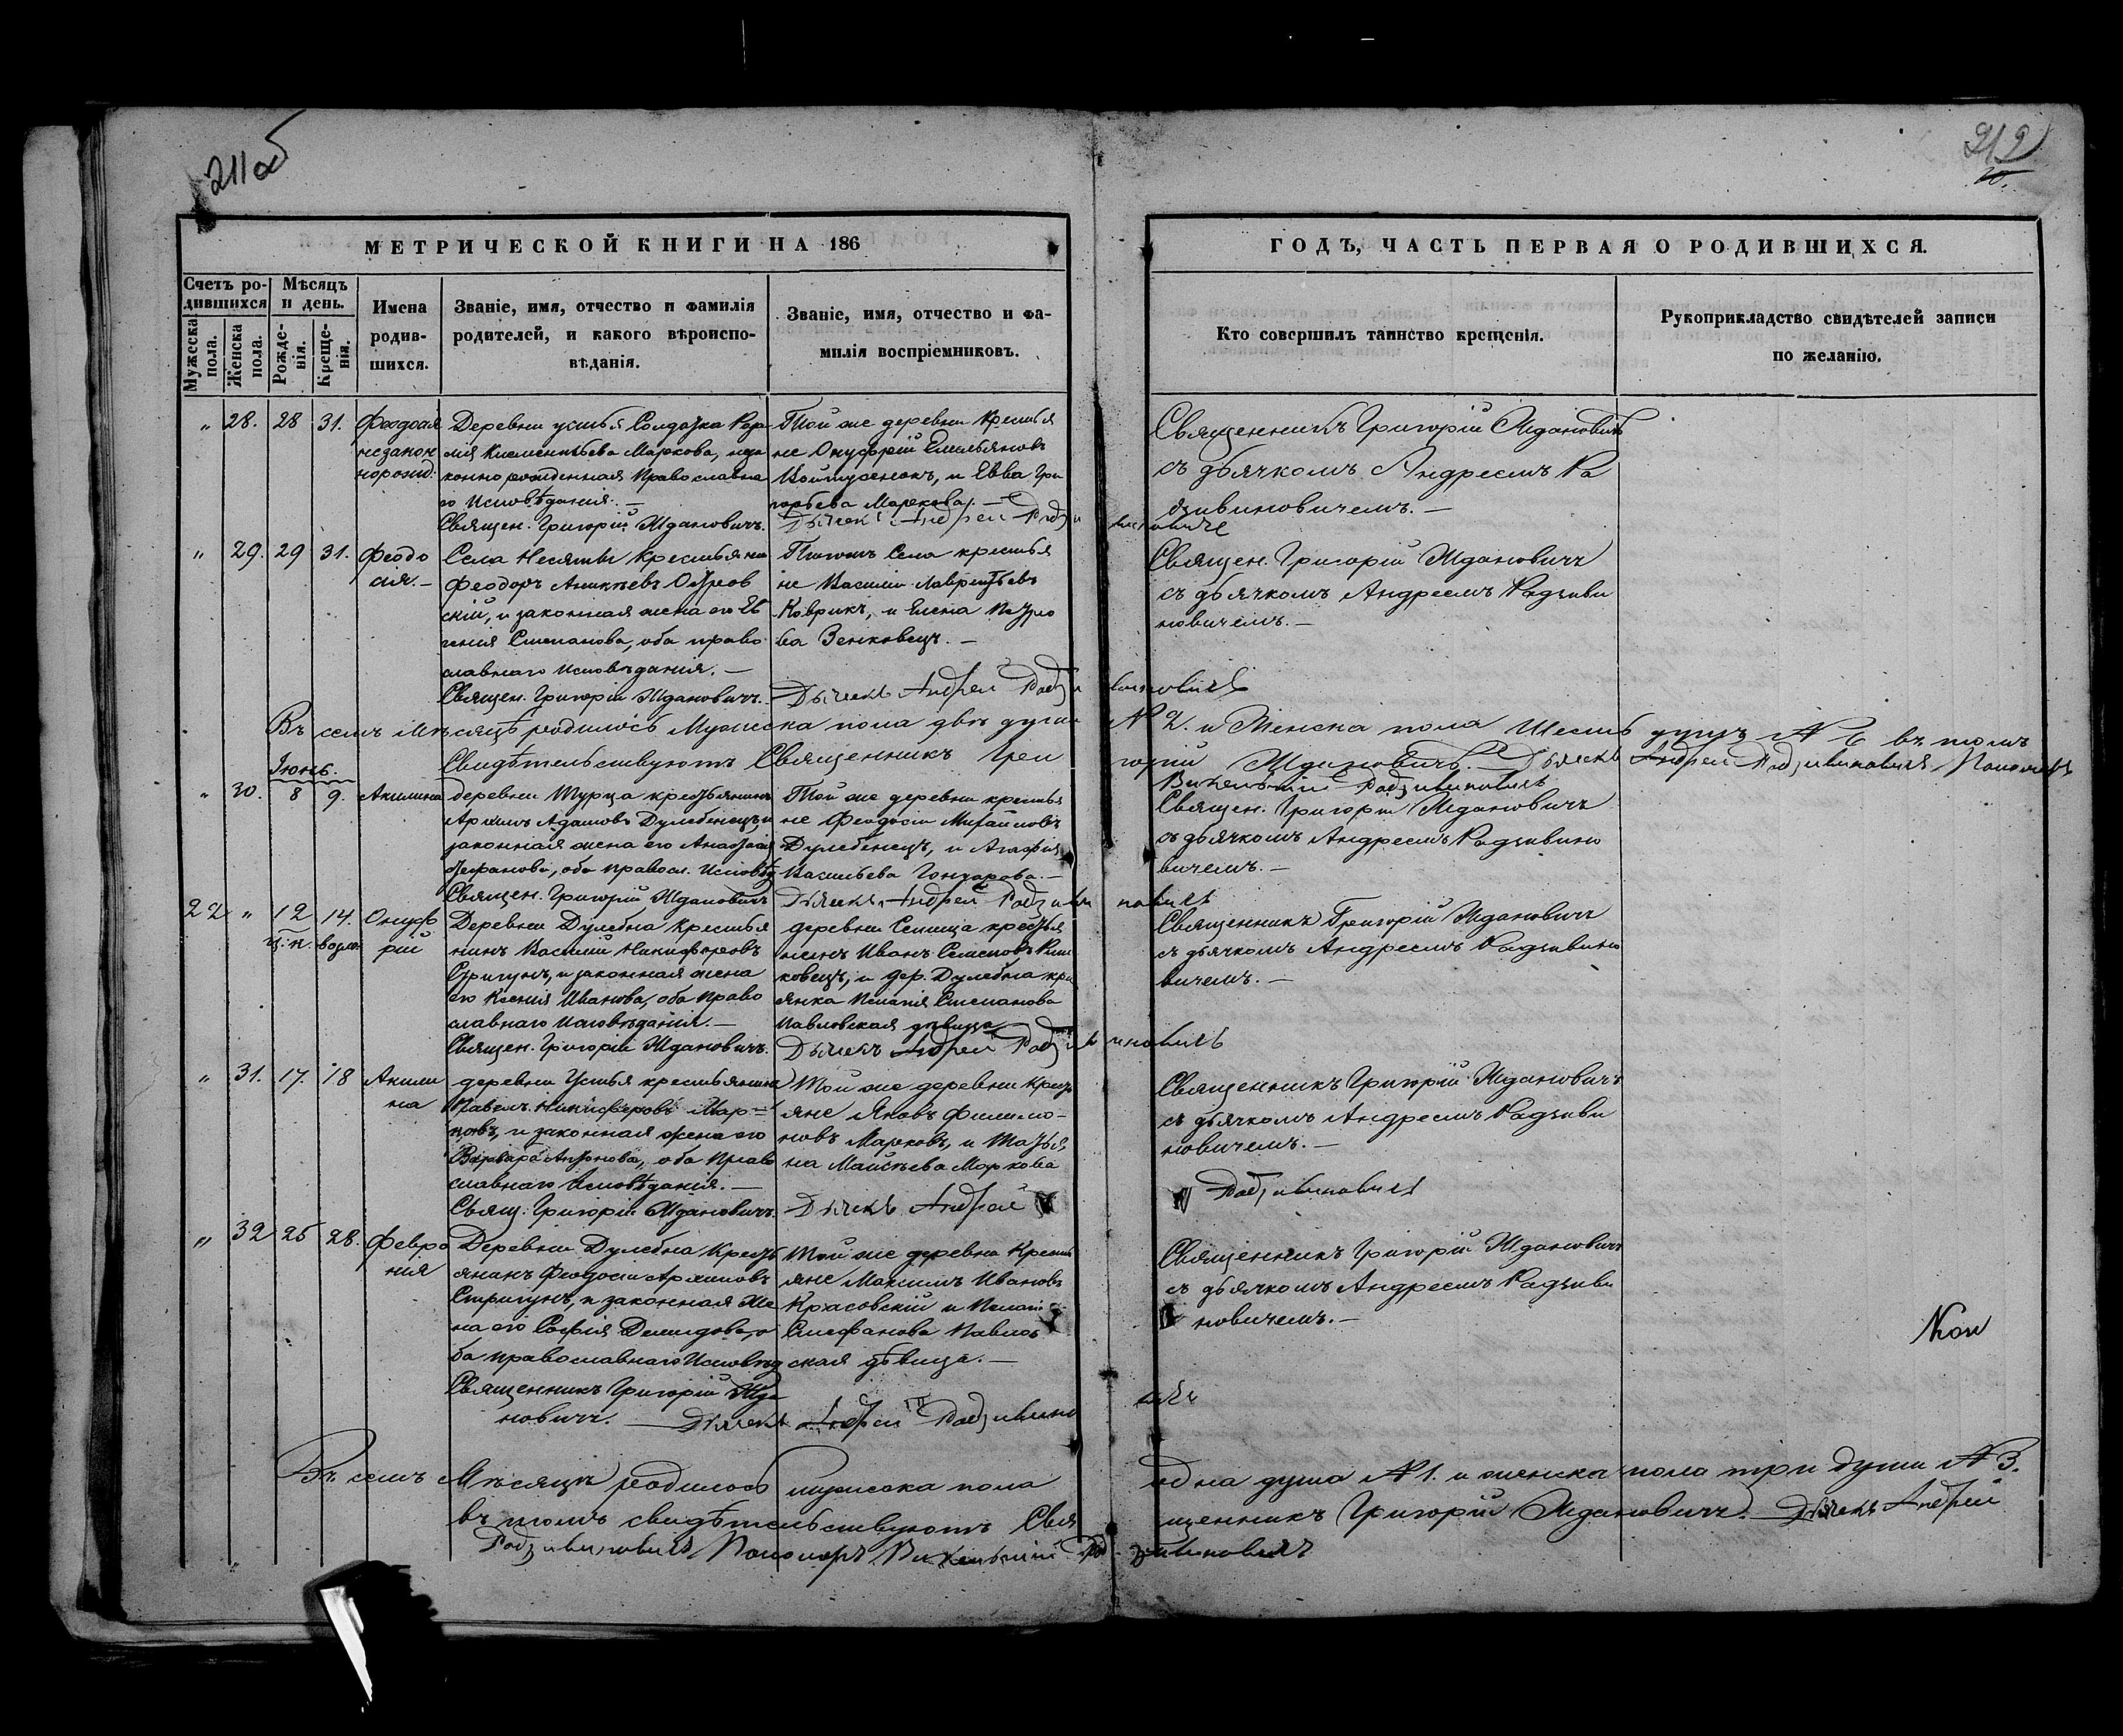 211об
212
10.
МЕТРИЧЕСКОЙ КНИГИ НА 186
ГОДЪ, ЧАСТЬ ПЕРВАЯ О РОДИВШИХСЯ.
Счетъ ро-
дившихся
Мѣсяцъ
и день.
Мужеска
пола.
Женска
пола.
Рожде-
нія.
Креще-
нія.
Имена
родив-
шихся.
Званіе, имя, отчество и фамилія
родителей, и какого вѣроиспо-
вѣданія.
Званіе, имя, отчество и фа-
милія воспріемниковъ.
Кто совершилъ таинство крещенія.
Рукоприкладство свидѣтелей записи
по желанію.
„ 28. 28 31.
Феодосія
незакон
норожд.
Деревни устья Солдатка
Маркова, неза
конно рожденная Православна
го Исповѣданія. —
Священ. Григорій Ждановичъ.
Той же деревни Крестья
не Онуфрій Емельяновъ
и Евва Гри
горьева Маркова. —
Дьячекъ Андрей Радзивиновичъ
Священникъ Григорій Ждановичъ
съ дьячкомъ Андреемъ Ра
дзивиновичемъ. —
„ 29. 29 31.
Феодо
сія. —
Села Несяты Крестьянинъ
Феодоръ Аникѣевъ Остров
скій, и законная жена его Ев
генія Степанова, оба право
славнаго исповѣданія. —
Священ. Григорій Ждановичъ.
Тогожъ Села крестья
не Василій Лаврентьевъ
Коврикъ, и Елена Петро
ва Зенковецъ. —
Дьячекъ Андрей Радзивиновичъ
Священ. Григорій Ждановичъ
съ дьячкомъ Андреемъ Радзиви
новичемъ. —
Въ семъ мѣсяцѣ родилось Мужеска пола двѣ души № 2. и Женска пола Шесть душъ № 6 въ томъ
Свидѣтельствуютъ Священникъ Григорій Ждановичъ. Дьячекъ Андрей Радзивиновичъ Пономарь
Викентій Радзивиновичъ
Іюнь.
„ 30. 8 9.
Акилина
деревни Турца крестьянинъ
Архипъ Адамовъ Дулебенецъ и
законная жена его Анастасія
Стефанова, оба правосл. Исповѣд
Священ. Григорій Ждановичъ
Той же деревни крестья
не Феодосій Михайловъ
Дулебенецъ, и Агафія
Васильева Гончарова. —
Дьячекъ Андрей Радзивиновичъ
Священ. Григорій Ждановичъ
съ дьячкомъ Андреемъ Радзивино
вичемъ. —
22 „ 12 14.
Онуф
рій
Деревни Дулебна Крестья
нинъ Василій Никифоровъ
Стригунъ, и законная жена
его Ксенія Иванова, оба право
славнаго исповѣданія. —
Священ. Григорій Ждановичъ.
деревни Селища крестья
нинъ Иванъ Семеновъ
ковецъ, и дер. Дулебна кре
янка Пелагія Степанова
Павловская дѣвица
Дьячекъ Андрей Радзивиновичъ
Священникъ Григорій Ждановичъ
съ дьячкомъ Андреемъ Радзивино
вичемъ. —
„ 31. 17. 18
Акили
на
деревни Устья крестьянинъ
Павелъ Никифоровъ Мар=
ковъ, и законная жена его
Варвара Антонова, оба Право
славнаго Исповѣданія. —
Свящ. Григорій Ждановичъ.
Той же деревни Кресть
яне Яковъ Филимо-
новъ Марковъ, и Татья
на Маркова
Дьячекъ Андрей Радзивиновичъ
Священникъ Григорій Ждановичъ
съ дьячкомъ Андреемъ Радзиви
новичемъ. —
„ 32 25 28.
Февро
нія
Деревни Дулебна Кресть
янинъ Феодосій Архиповъ
Стригунъ, и законная же
на его Софія Демидова, о
ба православнаго Исповѣд
Священникъ Григорій Жда
новичъ. — Дьячекъ Андрей Радзивиновичъ
Той же деревни Кресть
яне Максимъ Ивановъ
Красовскій и Пелагія
Стефанова Павлов
ская дѣвица. —
Священникъ Григорій Ждановичъ
съ дьячкомъ Андреемъ Радзиви
новичемъ. —
Въ семъ Мѣсяцѣ родилось мужеска пола одна душа № 1. и женска пола три души № 3.
въ томъ свидѣтельствуютъ Священникъ Григорій Ждановичъ. Дьячекъ Андрей
Радзивиновичъ Пономарь Викентій Радзивиновичъ